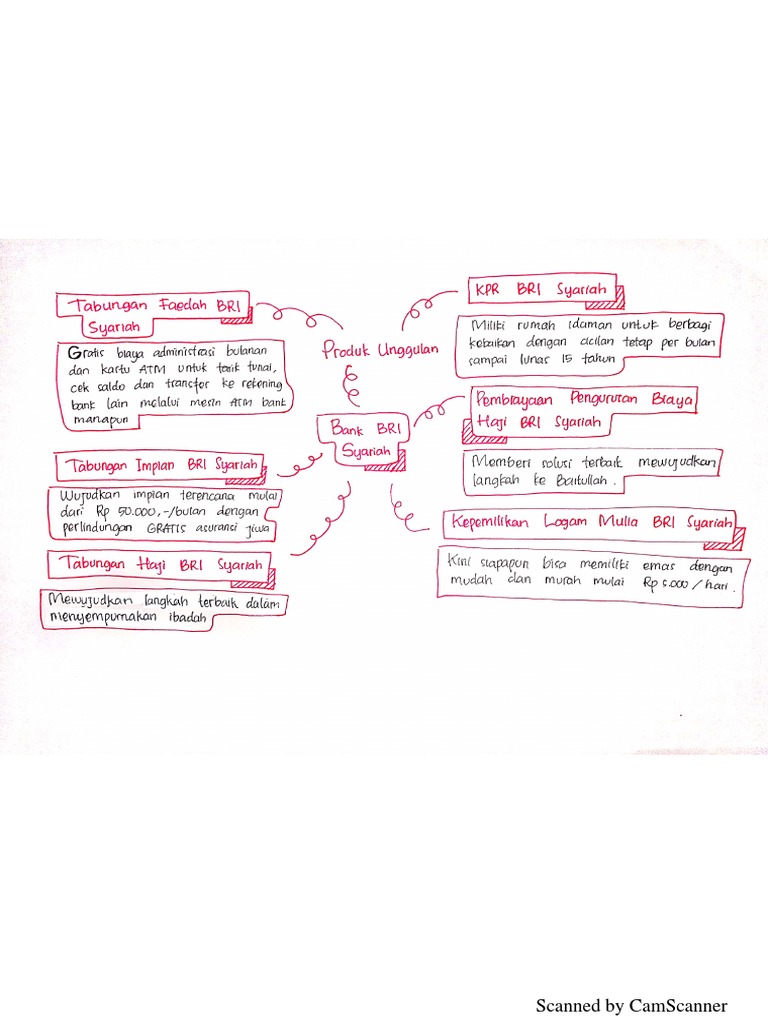 Produk Unggulan
Bank BRI
Syariah
Tabungan Faedah BRI
Syariah
Gratis biaya administrasi bulanan
dan kartu ATM untuk tarik tunai,
cek saldo dan transfer ke rekening
bank lain melalui mesin ATM bank
manapun
Tabungan Impian BRI Syariah
Wujudkan impian terencana mulai
dari Rp 50.000,-/bulan dengan
perlindungan GRATIS asuransi jiwa
Tabungan Haji BRI Syariah
Mewujudkan langkah terbaik dalam
menyempurnakan ibadah
KPR BRI Syariah
Miliki rumah idaman untuk berbagi
kebaikan dengan cicilan tetap per bulan
sampai lunas 15 tahun
Pembiayaan Pengurusan Biaya
Haji BRI Syariah
Memberi solusi terbaik mewujudkan
langkah ke Baitullah.
Kepemilikan Logam Mulia BRI Syariah
Kini siapapun bisa memiliki emas dengan
mudah dan murah mulai Rp 5.000 / hari.
Scanned by CamScanner